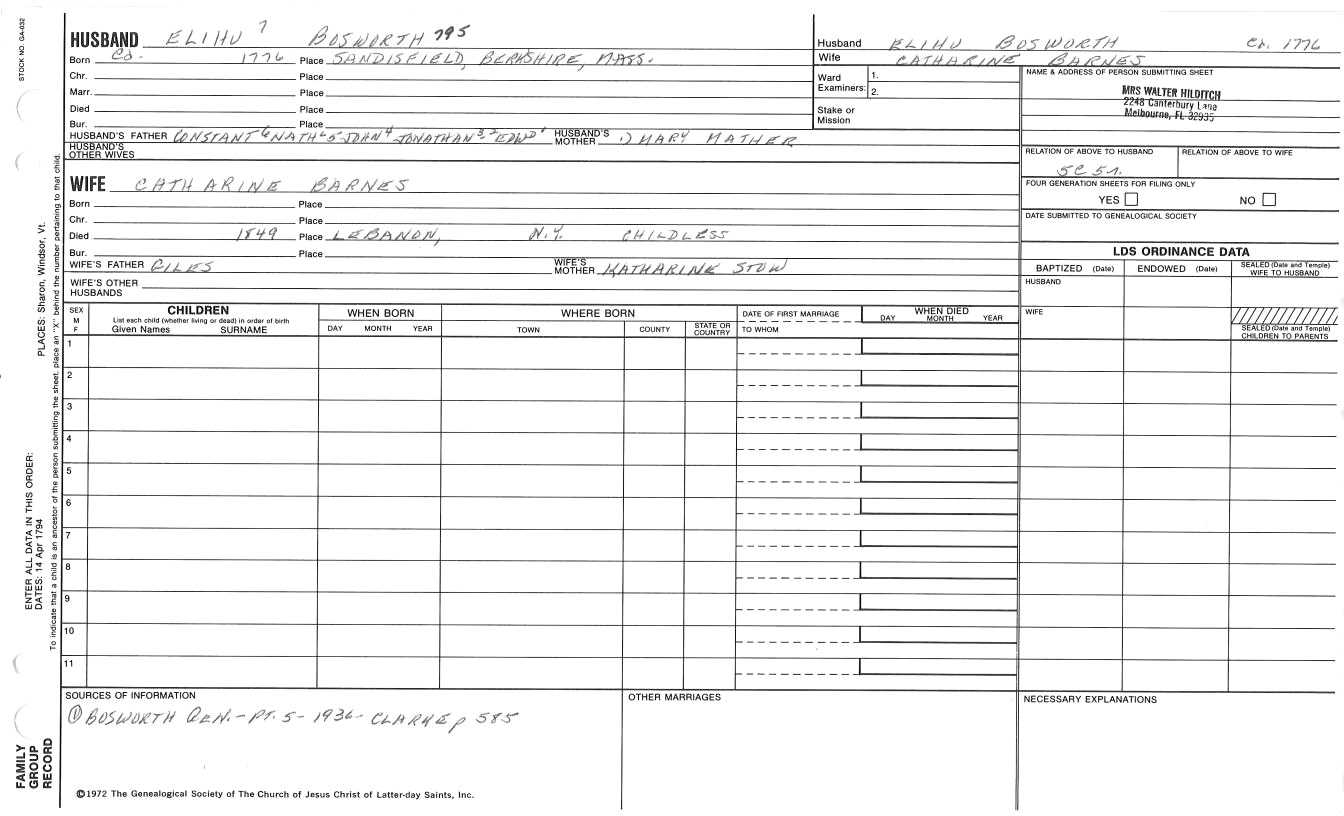 STOCK NO. GA-032
HUSBAND ELIHU 7 BOSWORTH 795
Born Cd. 1776 Place SANDISFIELD, BERKSHIRE, MASS.
Chr. Place
Marr. Place
Died Place
Bur. Place
HUSBAND'S FATHER CONSTANT 6 NATHL 5 JOHN 4 JONATHAN 3, 2 EDWD 1 HUSBAND'S MOTHER 1) MARY MATHER
HUSBAND'S OTHER WIVES
WIFE CATHARINE BARNES
Born Place
Chr. Place
Died 1849 Place LEBANON, N.Y. CHILDLESS
Bur. Place
WIFE'S FATHER GILES WIFE'S MOTHER KATHARINE STOW
WIFE'S OTHER HUSBANDS
Husband ELIHU BOSWORTH Cd. 1776
Wife CATHARINE BARNES
Ward Examiners: 1. 2.
Stake or Mission
NAME & ADDRESS OF PERSON SUBMITTING SHEET
MRS WALTER HILDITCH
2248 Canterbury Lane
Melbourne, FL 32935
RELATION OF ABOVE TO HUSBAND RELATION OF ABOVE TO WIFE
5C 5r.
FOUR GENERATION SHEETS FOR FILING ONLY
YES NO
DATE SUBMITTED TO GENEALOGICAL SOCIETY
LDS ORDINANCE DATA
BAPTIZED (Date) ENDOWED (Date) SEALED (Date and Temple) WIFE TO HUSBAND
HUSBAND
WIFE
SEALED (Date and Temple) CHILDREN TO PARENTS
SEX M F CHILDREN WHEN BORN WHERE BORN DATE OF FIRST MARRIAGE WHEN DIED
List each child (whether living or dead) in order of birth
Given Names SURNAME DAY MONTH YEAR TOWN COUNTY STATE OR COUNTRY TO WHOM DAY MONTH YEAR
1
2
3
4
5
6
7
8
9
10
11
SOURCES OF INFORMATION
① BOSWORTH GEN. - PT. 5 - 1936 - CLARKE p 585
OTHER MARRIAGES
NECESSARY EXPLANATIONS
©1972 The Genealogical Society of The Church of Jesus Christ of Latter-day Saints, Inc.
FAMILY
GROUP
RECORD
ENTER ALL DATA IN THIS ORDER:
DATES: 14 Apr 1794
PLACES: Sharon, Windsor, Vt.
To indicate that a child is an ancestor of the person submitting the sheet, place an "X" behind the number pertaining to that child.